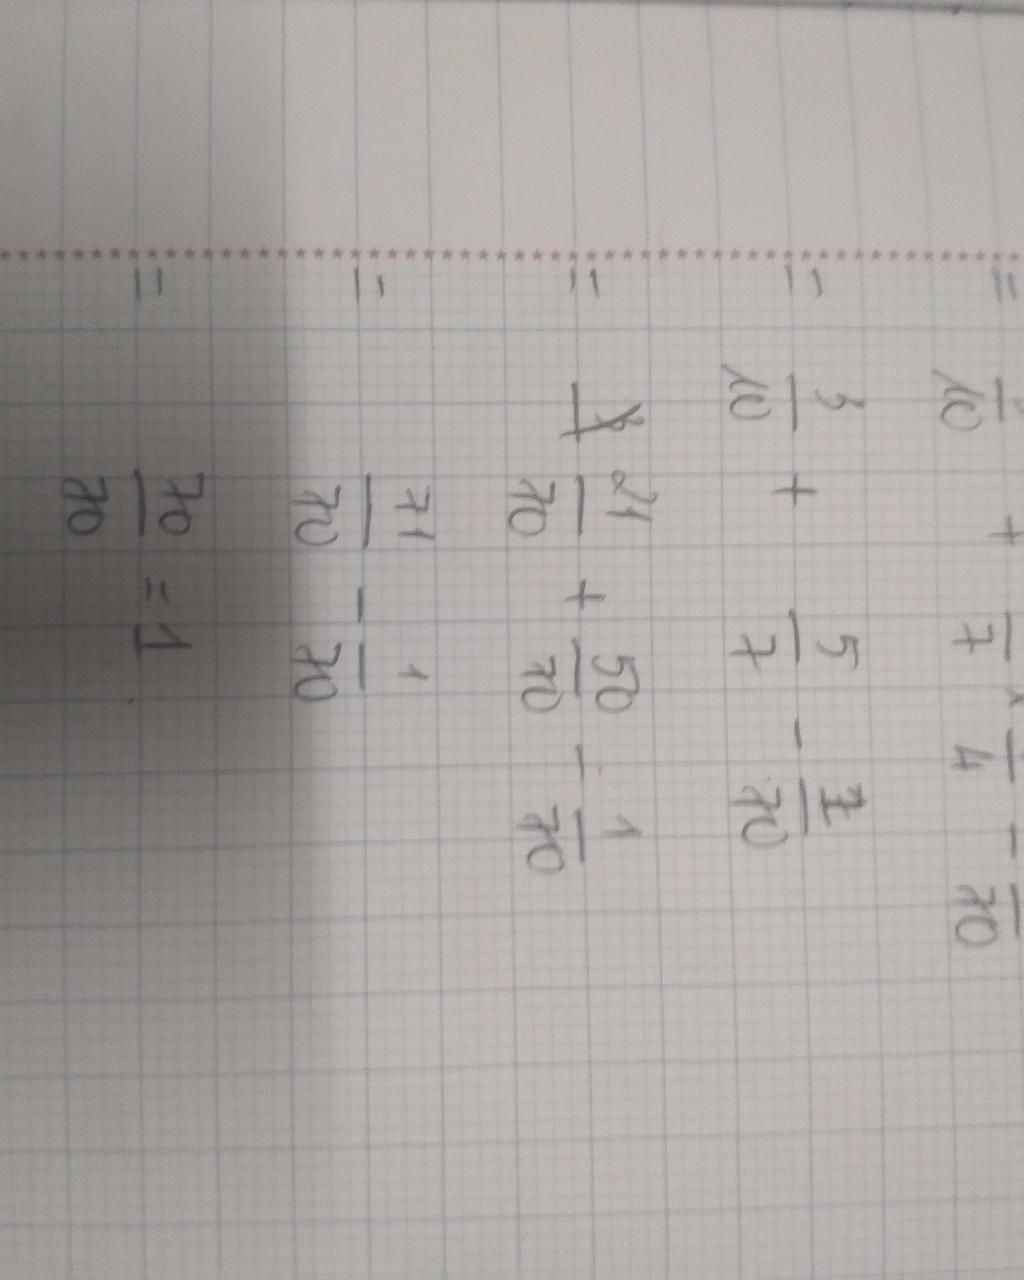 = /10 + /7 × /4 - /70
= 3/10 + 5/7 - 1/70
= 21/70 + 50/70 - 1/70
= 71/70 - 1/70
= 70/70 = 1